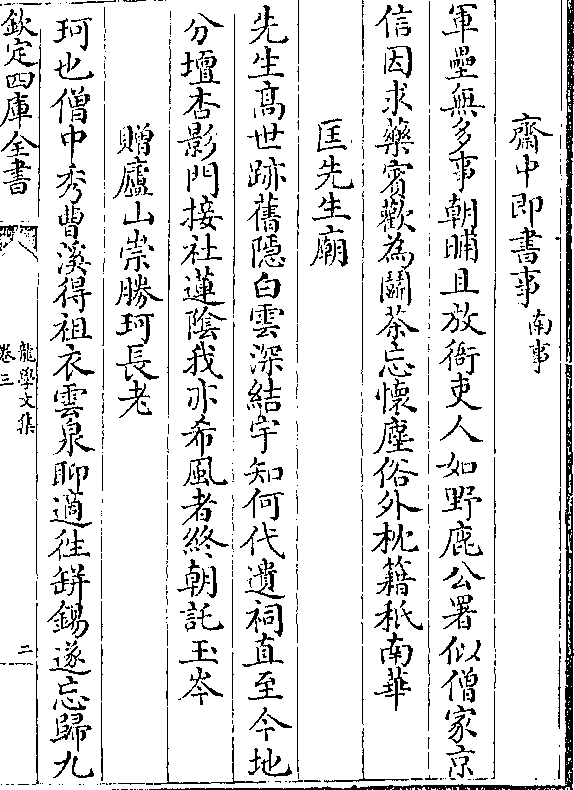 齋中即書事南事
軍壘無多事朝晡且放衙吏人如野鹿公署似僧家京
信因求藥賓歡為鬭茶忘懷塵俗外枕籍秖南華
匡先生廟
先生高世跡舊隠白雲深結宇知何代遺祠直至今地
分壇杏影門接社蓮陰我亦希風者終朝託玉岑
贈廬山崇勝珂長老
珂也僧中秀曹溪得祖衣雲泉聊適徃缾錫遂忘歸九
欽定四庫全書
龍學文集
卷三
二